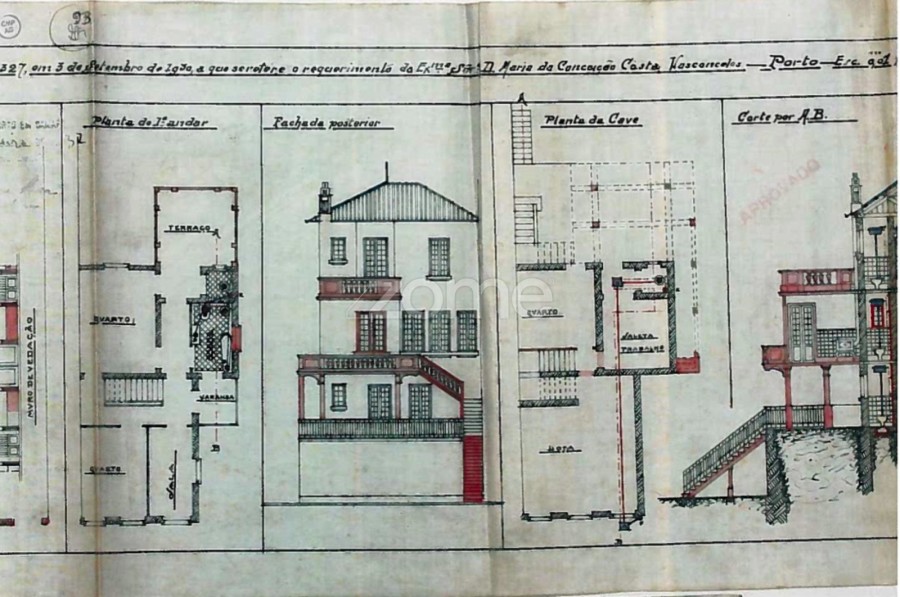 93
327, em 3 de Setembro de 1930, a que se refere o requerimento da Exma Snra D. Maria da Conceição Costa Vasconcelos — Porto — Esc.
Planta do 1º andar
Fachada posterior
A
Planta da Cave
Corte por A.B.
APROVADO
TERRAÇO
A
QUARTO
VARANDA
B
QUARTO
SALA
MURO DE VEDAÇÃO
zome
QUARTO
SALETA
TRABALHO
B